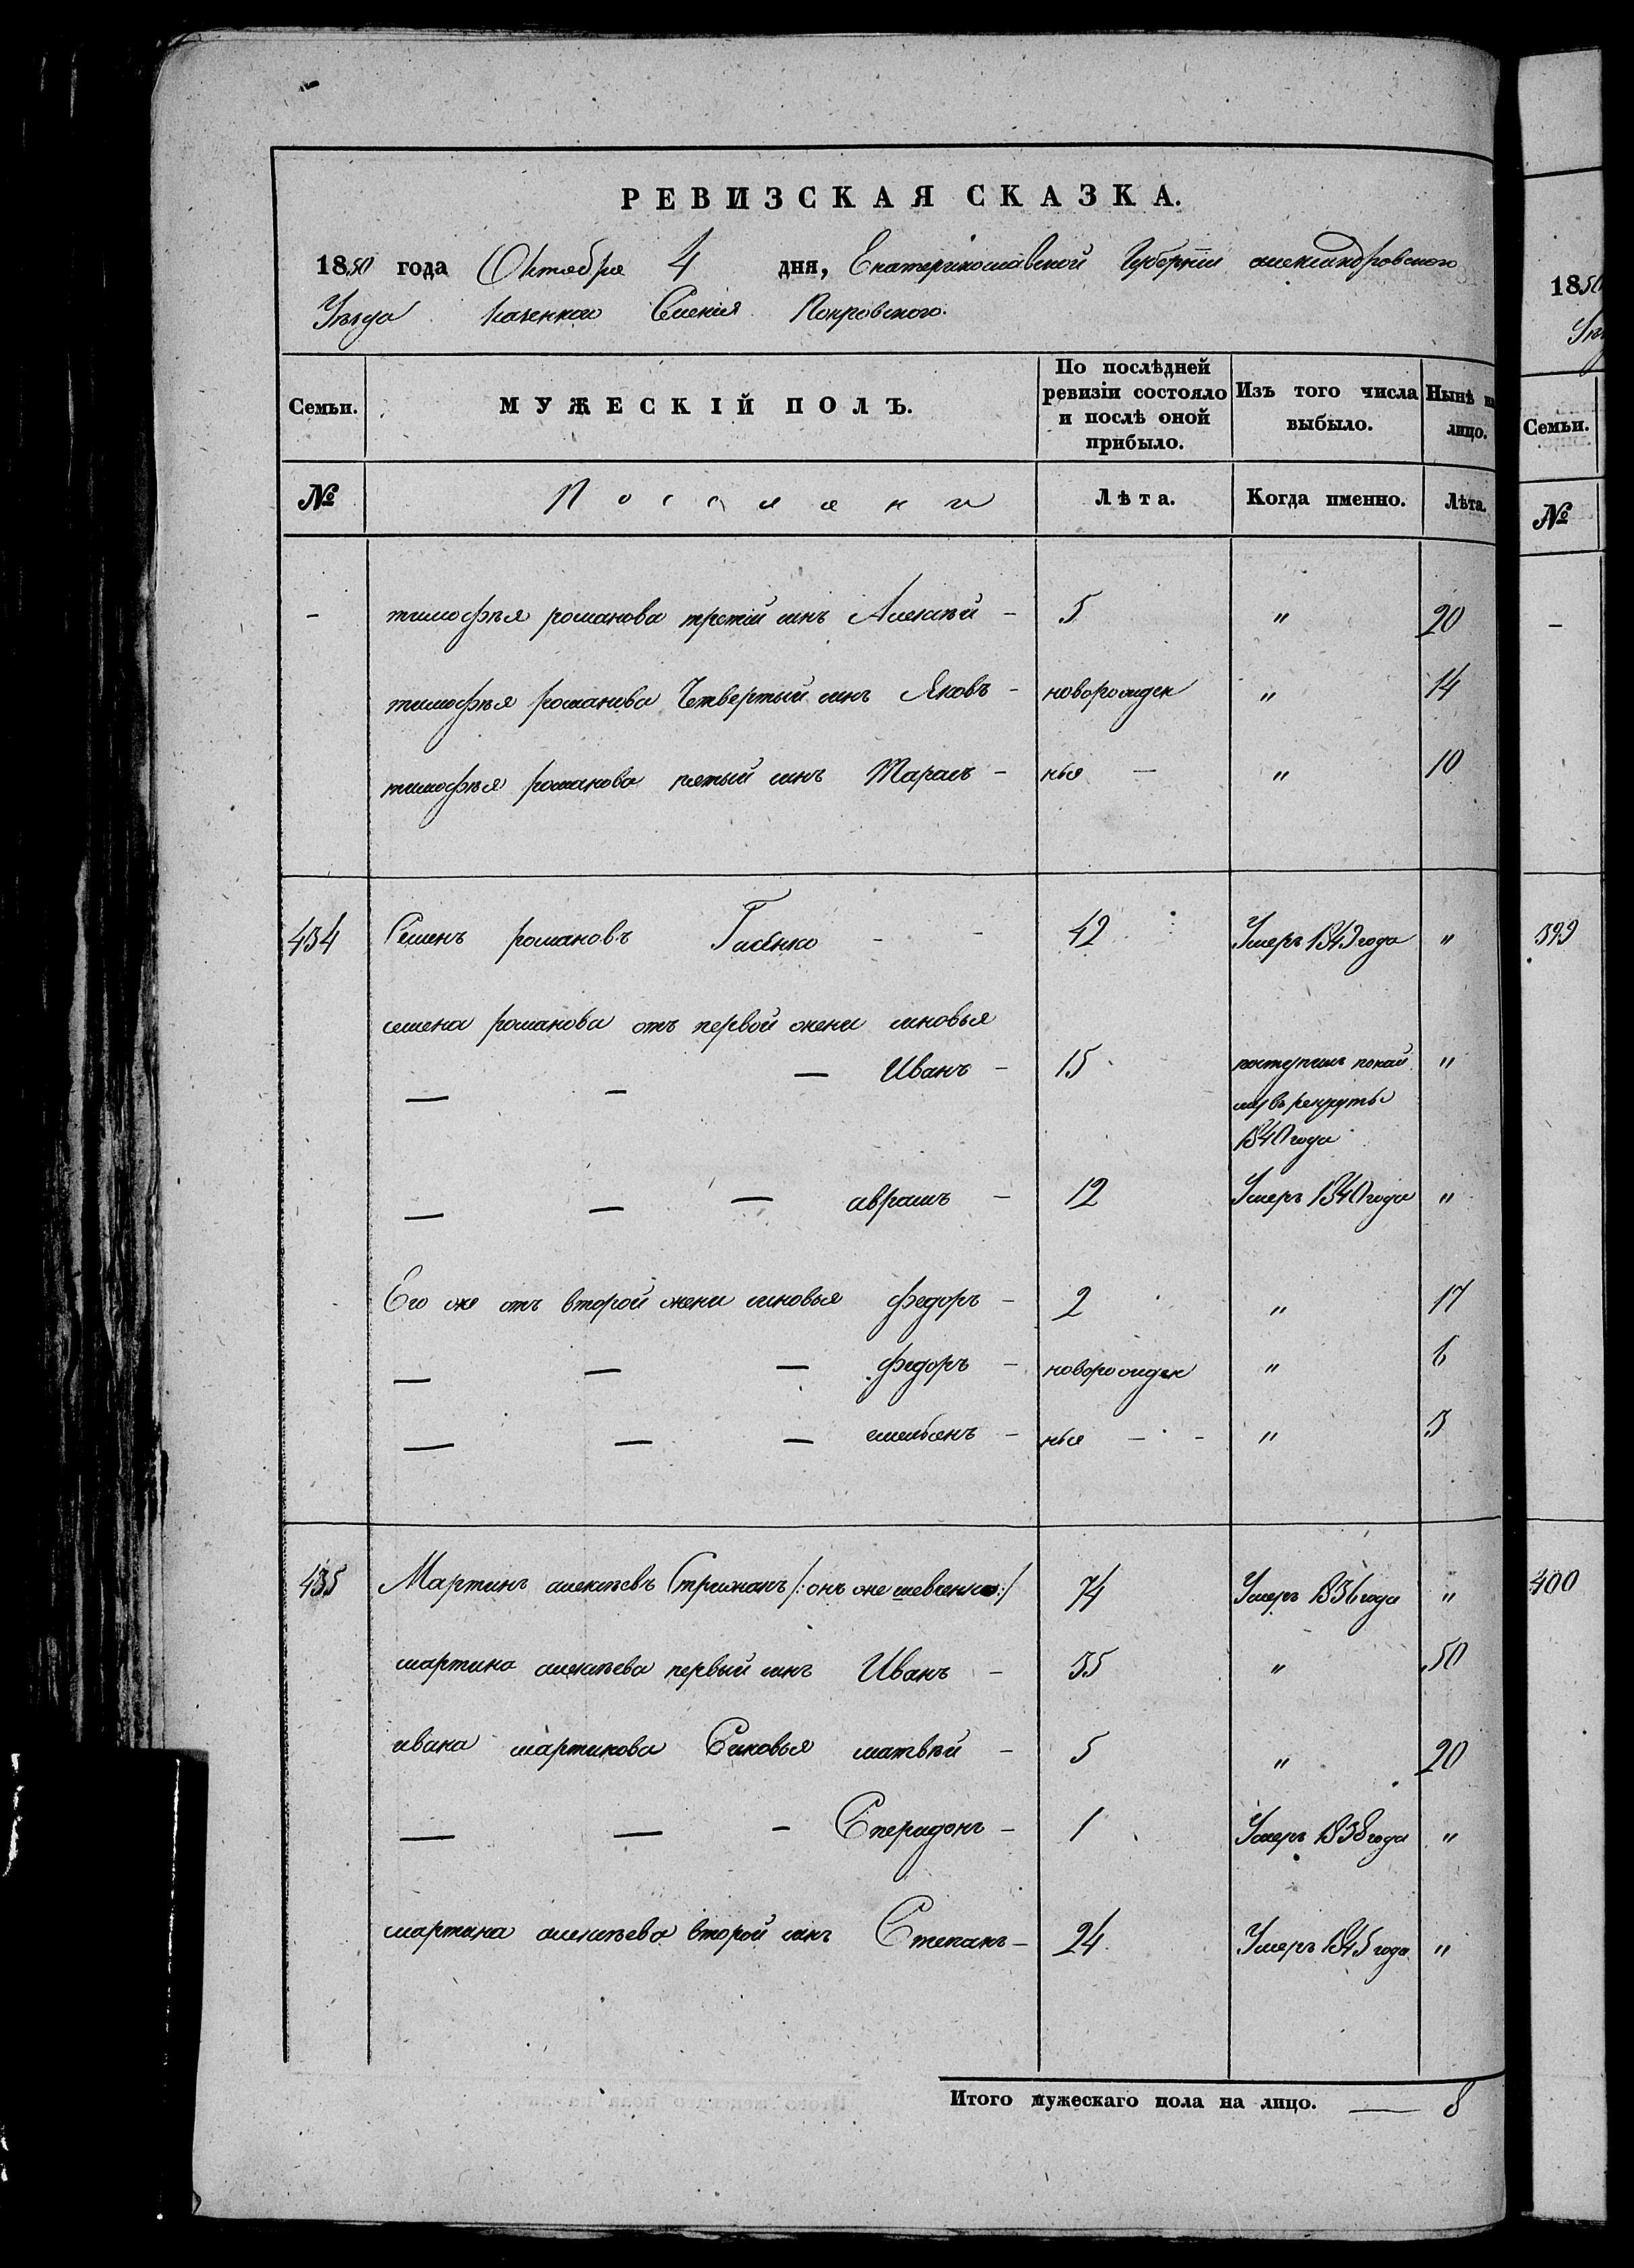 РЕВИЗСКАЯ СКАЗКА.
1850 года Октября 4 дня, Екатеринославской Губернiи александровского
Уезда казенного Селенiя Покровского.
Семьи. МУЖЕСКІЙ ПОЛЪ. По послѣдней ревизіи состояло и послѣ оной прибыло. Изъ того числа выбыло. Нынѣ на лицо.
№ Поселяни Лѣта. Когда именно. Лѣта.
- тимофѣя романова третiй синъ Алексѣй - 5 " 20
тимофѣя романова Четвертый синъ Яковъ - новорожден " 14
тимофѣя романова пятый синъ Тарасъ - ныя - " 10
434 Семенъ романовъ - - 42 Умеръ 1849 года "
семена романова отъ первой жени синовья
— — — Иванъ - 15 поступилъ
въ рекруты
1840 года "
— — — аврамъ - 12 Умеръ 1840 года "
Его же отъ второй жени синовья федоръ - 2 " 17
— — — федоръ - новорожден " 6
— — — - ныя - - " 3
435 Мартинъ алексѣевъ Стрижакъ /:онъ же шевченко:/ 74 Умеръ 1836 года "
мартина алексѣева первый синъ Иванъ - 35 " 50
ивана мартинова Синовья матвѣй - 5 " 20
— — - Сперидонъ - 1 Умеръ 1838 года "
мартина алексѣева второй синъ Степанъ - 24 Умеръ 1845 года "
Итого мужескаго пола на лицо. — 8
1850
Семьи.
№
-
399
400